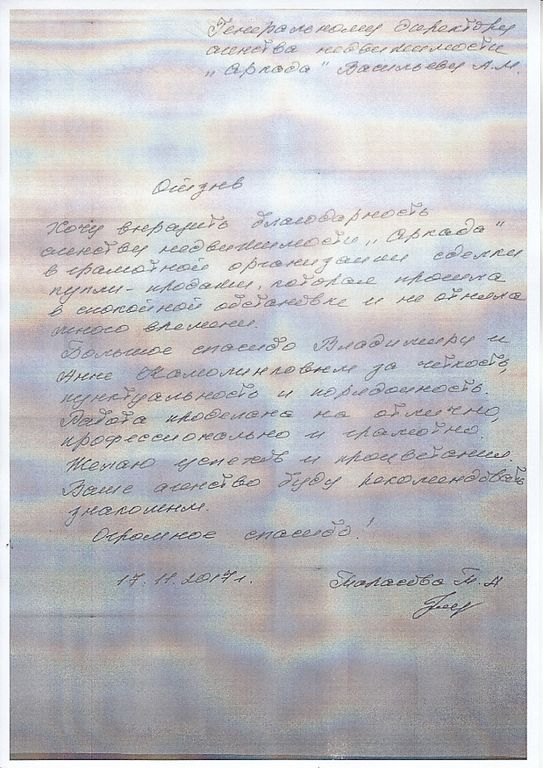 Генеральному директору
агенства недвижимости
„Аркада" Васильеву А.М.
Отзыв
Хочу выразить благодарность
агенству недвижимости „Аркада"
в грамотной организации сделки
купли-продажи, которая прошла
в спокойной обстановке и не отняла
много времени.
Большое спасибо Владимиру и
Анне за чёткость,
пунктуальность и порядочность.
Работа проделана на отлично,
профессионально и грамотно.
Желаю успехов и процветания.
Ваше агенство буду рекомендовать
знакомым.
Огромное спасибо!
17.11.2017г.